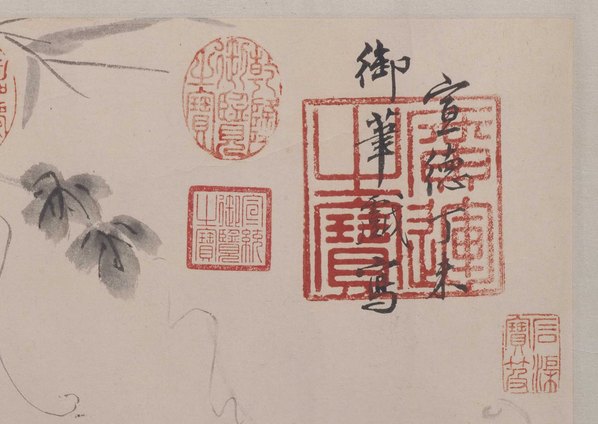 宣德丁未
御筆戲寫
廣運之寶
乾隆御覽之寶
宣統御覽之寶
石渠寶笈